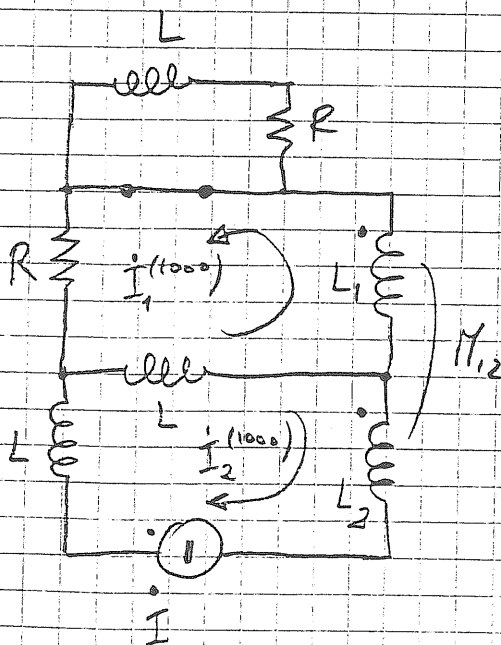 L
R
R
I₁⁽¹⁰⁰⁰⁾
L₁
M₁₂
L
L
I₂⁽¹⁰⁰⁰⁾
L₂
I